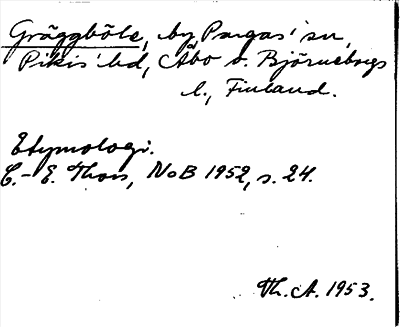 Gräggböle, by, Pargas' sn,
Pikis' hd, Åbo o. Björneborgs
l., Finland.
Etymologi.
C.-E. Thors, NoB 1952, s. 24.
Th. A. 1953.